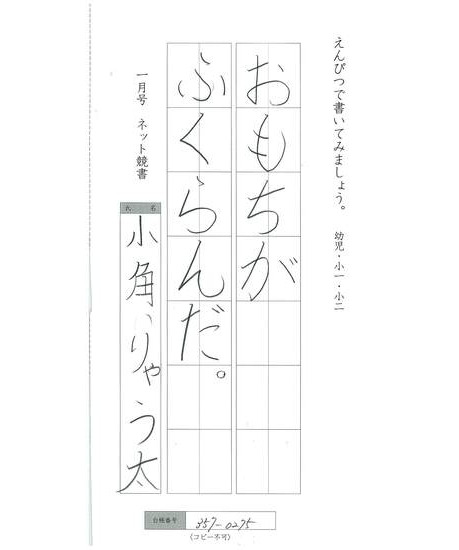 えんぴつで書いてみましょう。 幼児・小一・小二
おもちが
ふくらんだ。
一月号 ネット競書
氏名
小角りゃう太
会検番号 357-0275
(コピー不可)